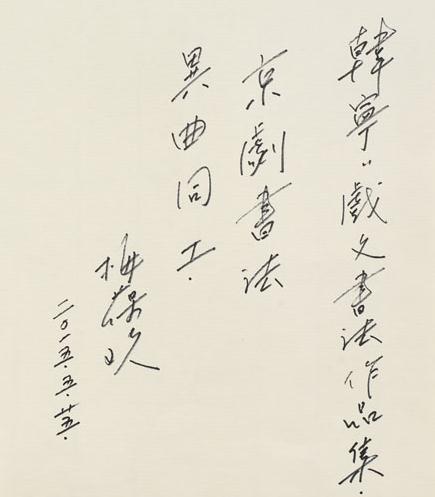 韓寧〃戲文書法作品集.
京劇書法
異曲同工.
梅葆玖
二〇一五.五.廿五.